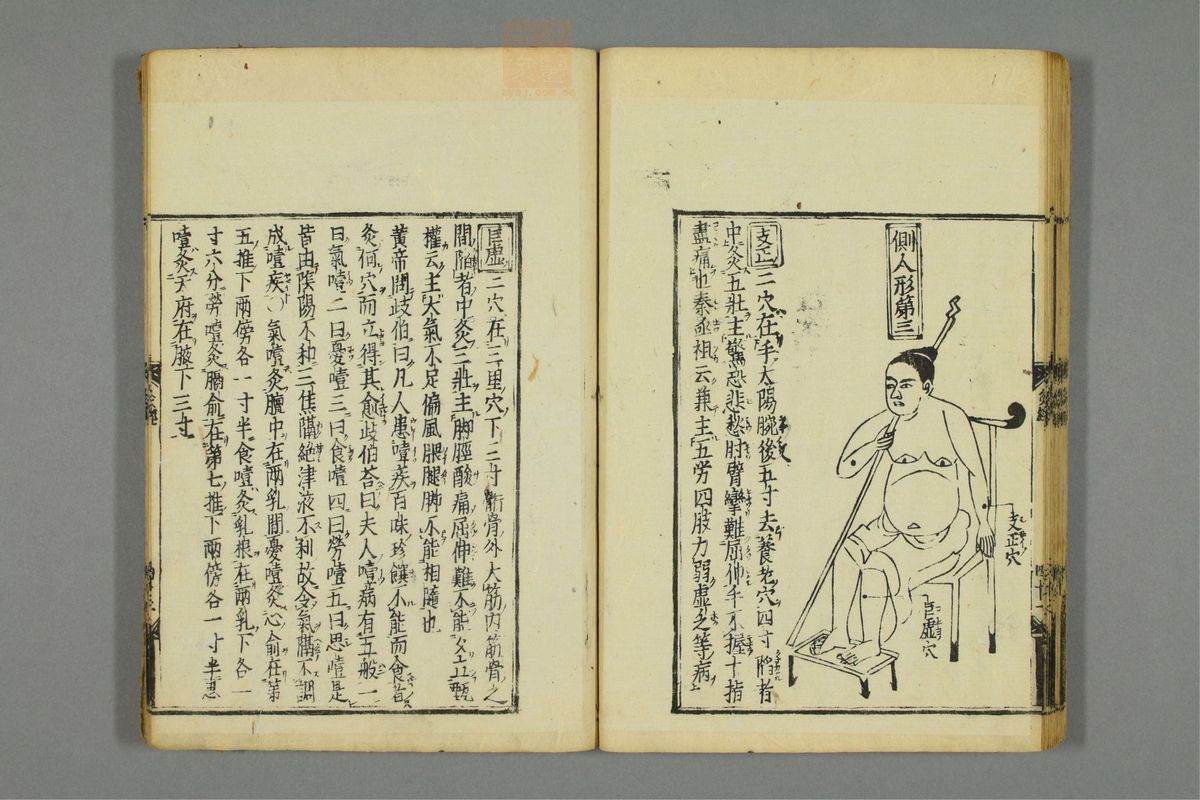 側人形第三
支正穴
巨虚穴
支正二穴在手太陽腕後五寸去養老穴四寸陷者
中灸五壯主驚恐悲愁肘臂攣難屈伸手不握十指
盡痛也秦丞祖云兼主五勞四肢力弱虛乏等病
巨虚二穴在三里穴下三寸䯒骨外大筋内筋骨之
間陷者中灸三壯主脚脛酸痛屈伸難不能久立甄
權云主大氣不足偏風腲腿脚不能相隨也
黄帝問歧伯曰凡人患噎疾百味珍饌不能而食者
灸何穴而立得其愈歧伯荅曰夫人噎病有五般一
曰氣噎二曰憂噎三曰食噎四曰勞噎五曰思噎是
皆由陰陽不和三焦隔絶津液不利故令氣隔不調
成噎疾〇氣噎灸膻中在兩乳間憂噎灸心俞在第
五推下兩傍各一寸半食噎灸乳根在兩乳下各一
寸六分勞噎灸膈俞在第七推下兩傍各一寸半思
噎灸天府在腋下三寸